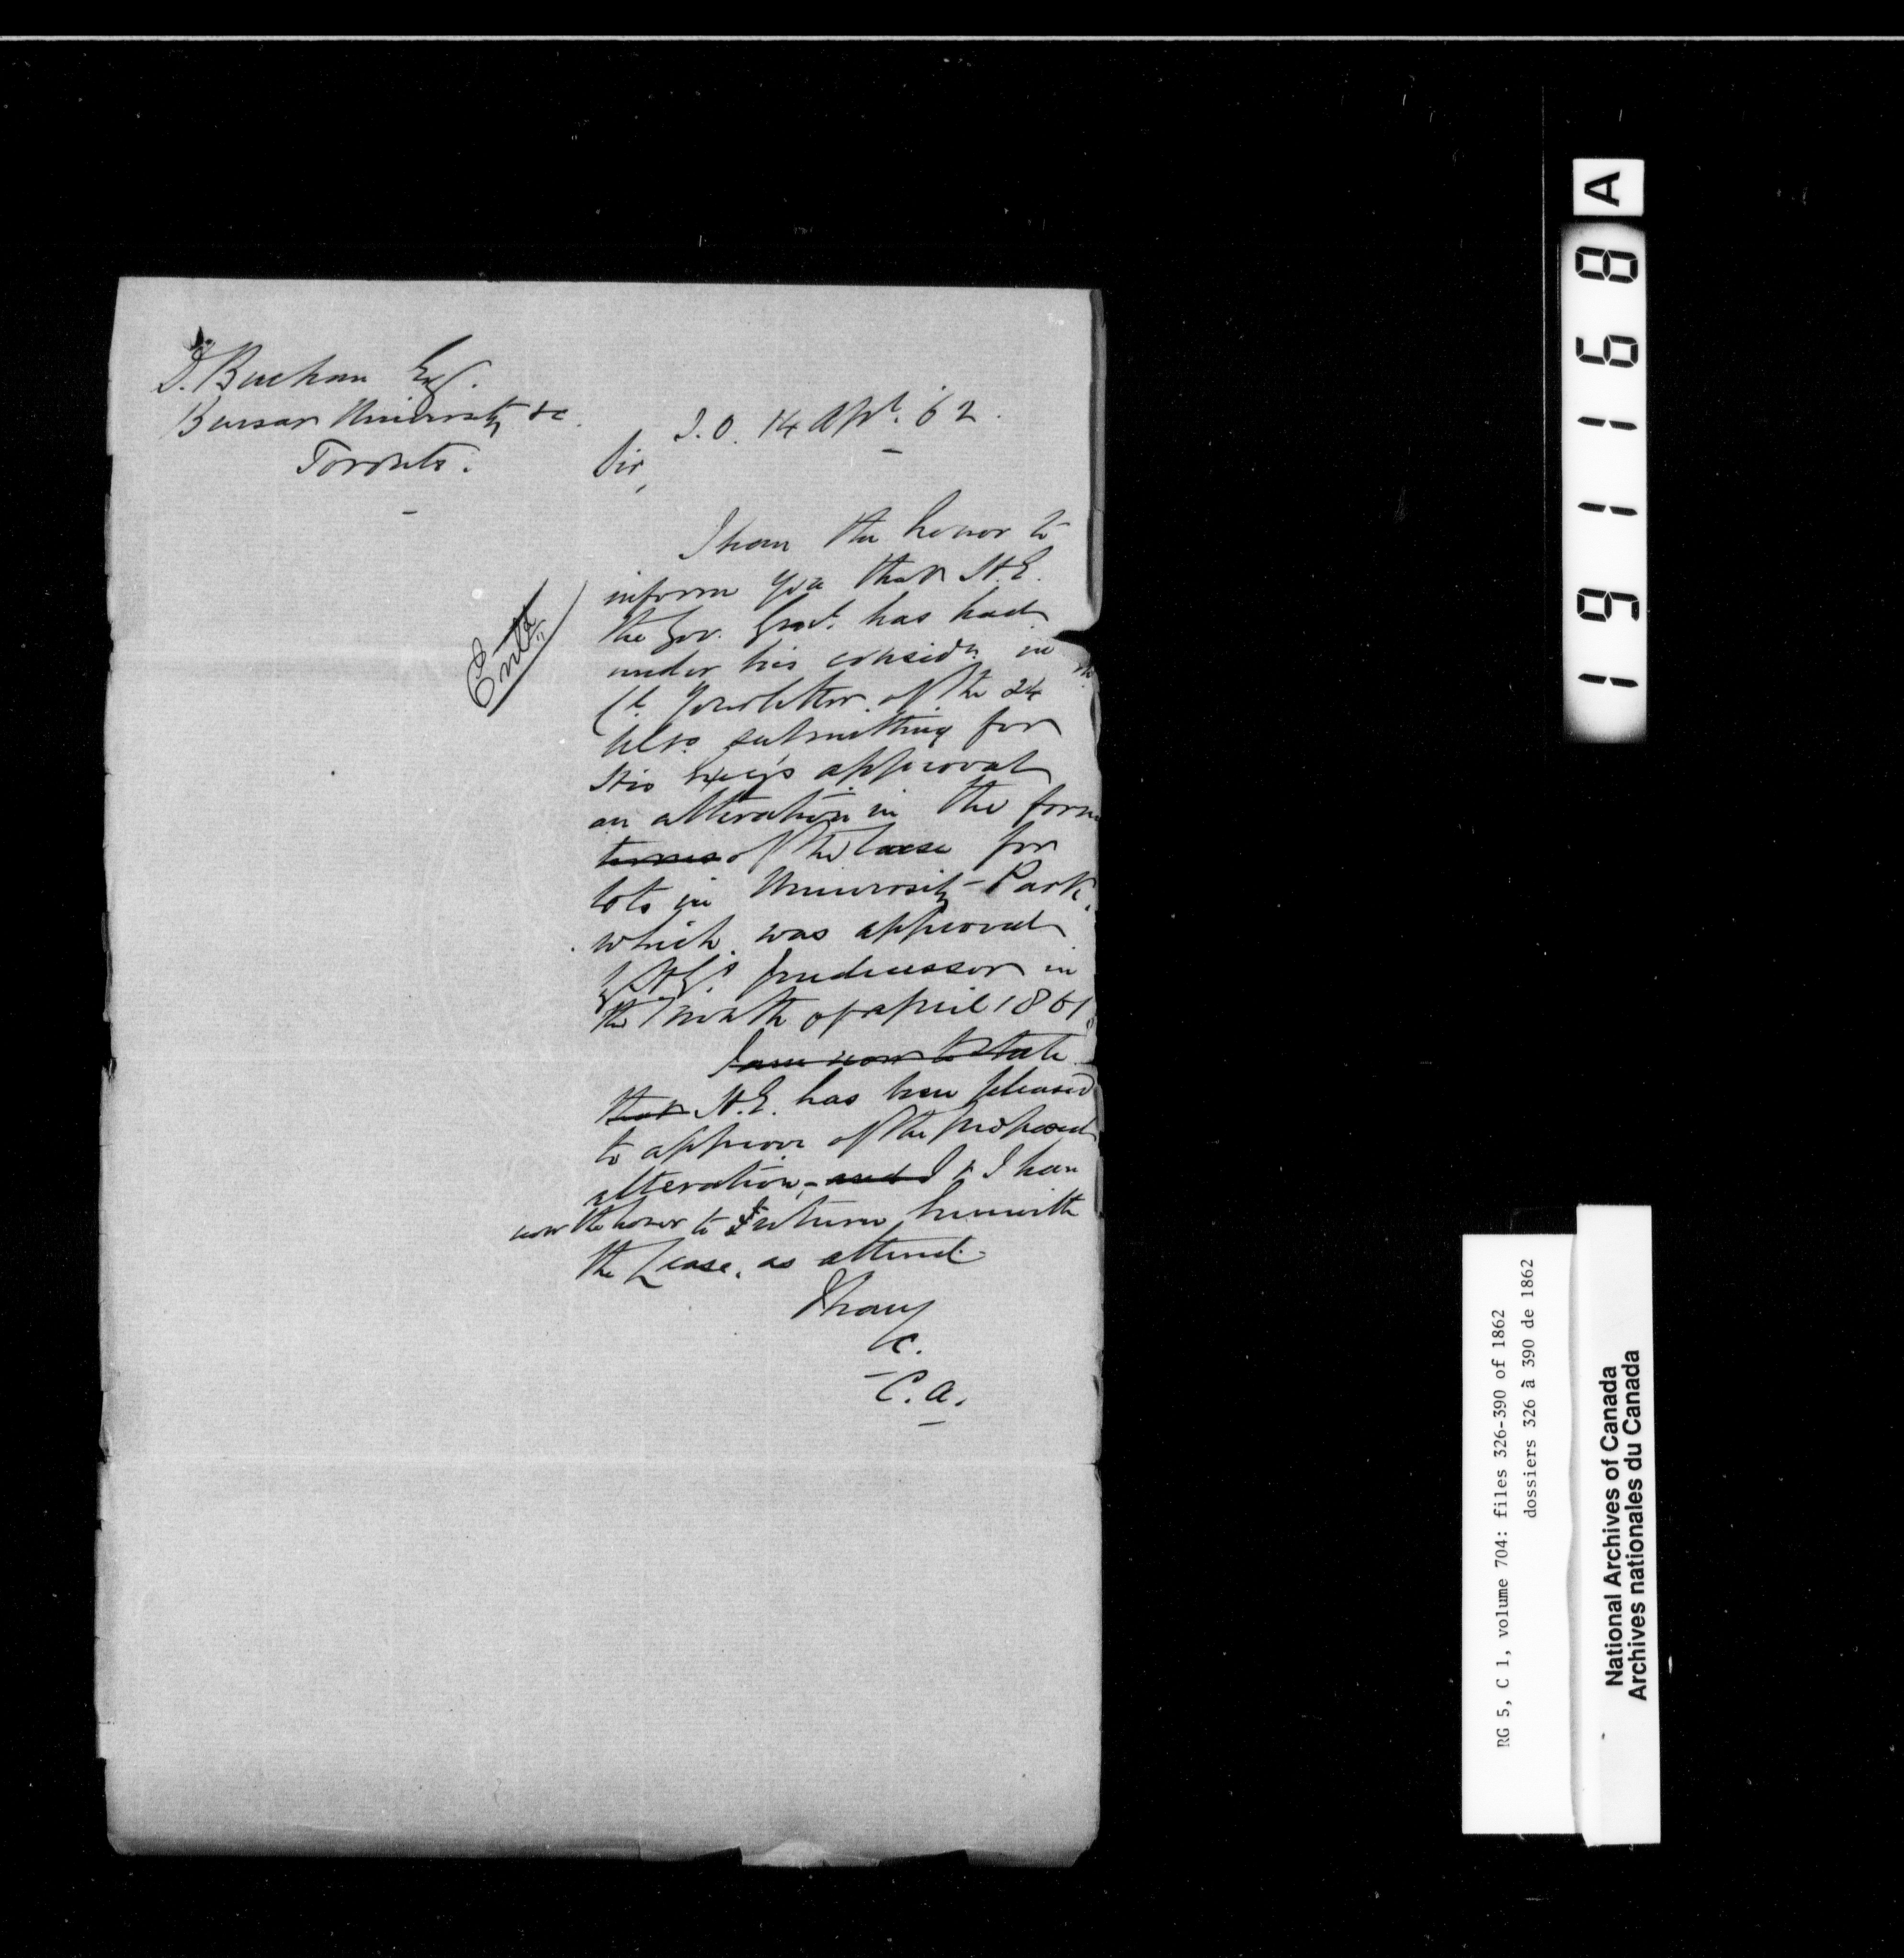 D. Buchan Esq.
Bursar University &c.
Toronto.
S.O. 14 Apl. 62.
Sir,
I have the honor to
inform you that H.E.
the Gov. Genl. has had
under his considn. in
Cl. your letter of the 24th
ulto. submitting for
His Excy's approval
an alteration in the form
terms of the lease for
lots in University Park,
which was approved
by H.E's predecessor in
the month of April 1861.
I am now to state
that H.E. has been pleased
to approve of the proposed
alteration, and I & I have
now the honor to return herewith
the Lease, as altered.
I have
&c.
C.A.
Entd
191168 A
RG 5, C 1, volume 704: files 326-390 of 1862
dossiers 326 à 390 de 1862
National Archives of Canada
Archives nationales du Canada